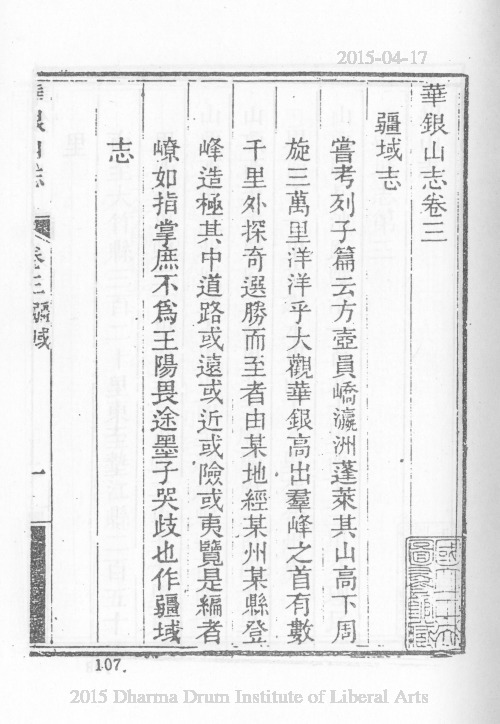 2015-04-17
華銀山志卷三
疆域志
嘗考列子篇云方壺員嶠瀛洲蓬萊其山高下周
旋三萬里洋洋乎大觀華銀高出羣峰之首有數
千里外探奇選勝而至者由某地經某州某縣登
峰造極其中道路或遠或近或險或夷覽是編者
嶛如指掌庶不爲王陽畏途墨子哭歧也作疆域
志
華銀山志
卷三疆域
一
107.
2015 Dharma Drum Institute of Liberal Arts